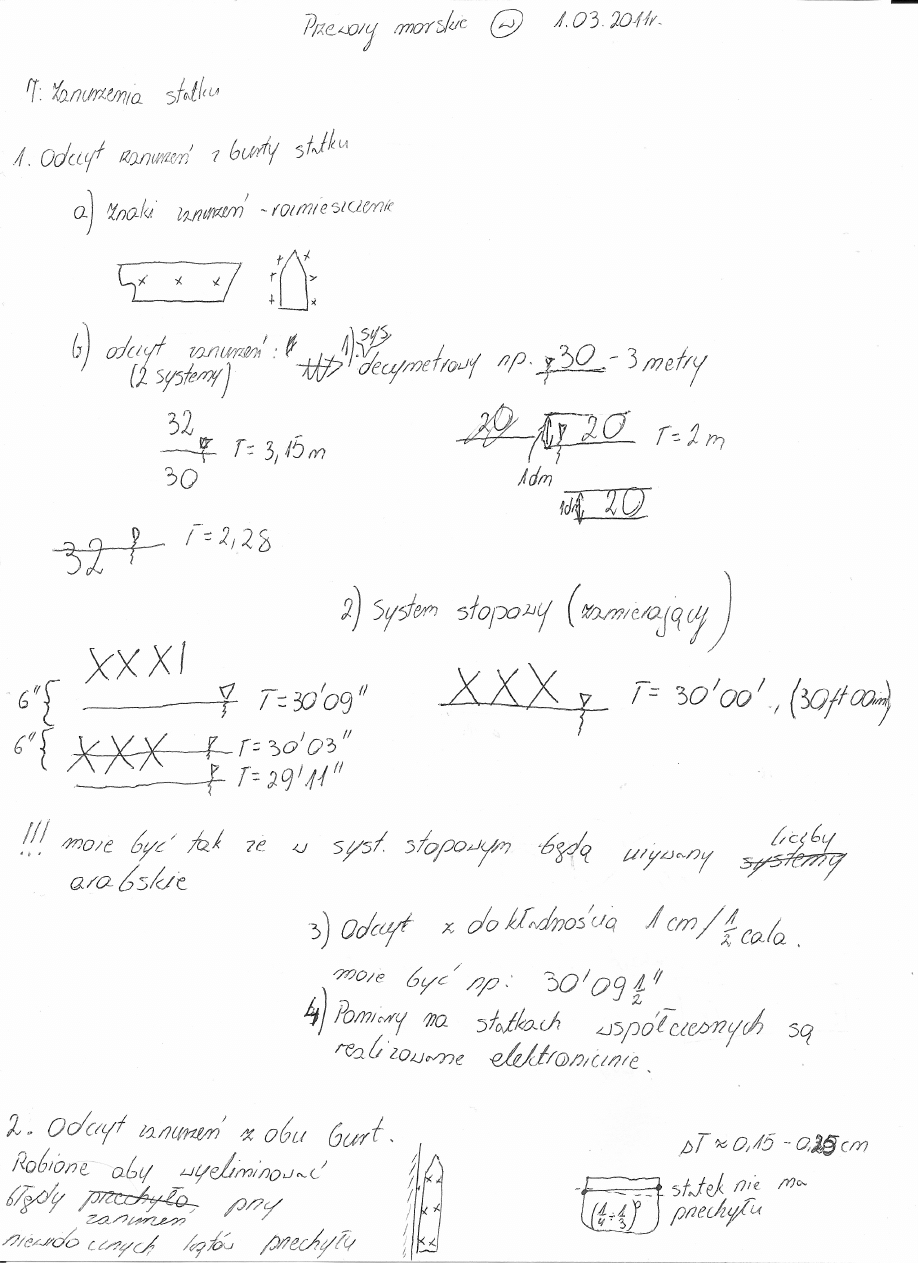 Przewozy morskie (w) 1.03.2011r.
T: Zanurzenia statku
1. Odczyt zanurzeń z burty statku
a) Znaki zanurzeń - rozmieszczenie
b) odczyt zanurzeń: 1) sys. decymetrowy np. 30 - 3 metry
(2 systemy)
32
30
T = 3,15m
20 20 T = 2m
1dm
1dm 20
32 T = 2,28
2) System stopowy (zamierający)
XXXI
6" T = 30'09"
XXX T = 30'00', (30ft 00in)
6" XXX T = 30'03"
T = 29'11"
!!! może być tak że w syst. stopowym będą używany liczby systemy
arabskie
3) Odczyt z dokładnością 1 cm / 1/2 cala.
może być np: 30'09 1/2"
4) Pomiary na statkach współczesnych są
realizowane elektronicznie.
2. Odczyt zanurzeń z obu burt.
Robione aby wyeliminować
błędy przechyło, przy
zanurzeń
niewidocznych kątów przechyłu
ΔT ≈ 0,15 - 0,25 cm
statek nie ma
przechyłu
(1/4 ÷ 1/3)°